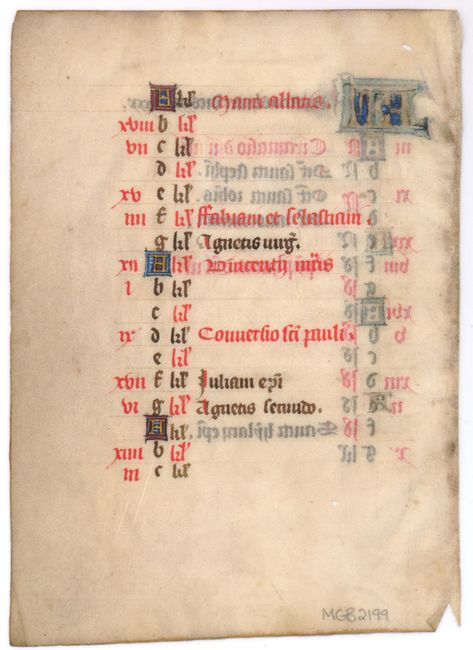 A kl' Mauri abbatis.
xviii b kl'
vii c kl'
d kl'
xv e kl'
iiii f kl' ffabiani et sebastiani.
g kl' Agnetis virg̃.
xii A kl' Vincentii mr̃is
i b kl'
c kl'
ix d kl' Conversio sc̃i pauli.
e kl'
xvii f kl' Juliani ep̃i
vi g kl' Agnetis secundo.
A kl'
xiiii b kl'
iii c kl'
MGB2199